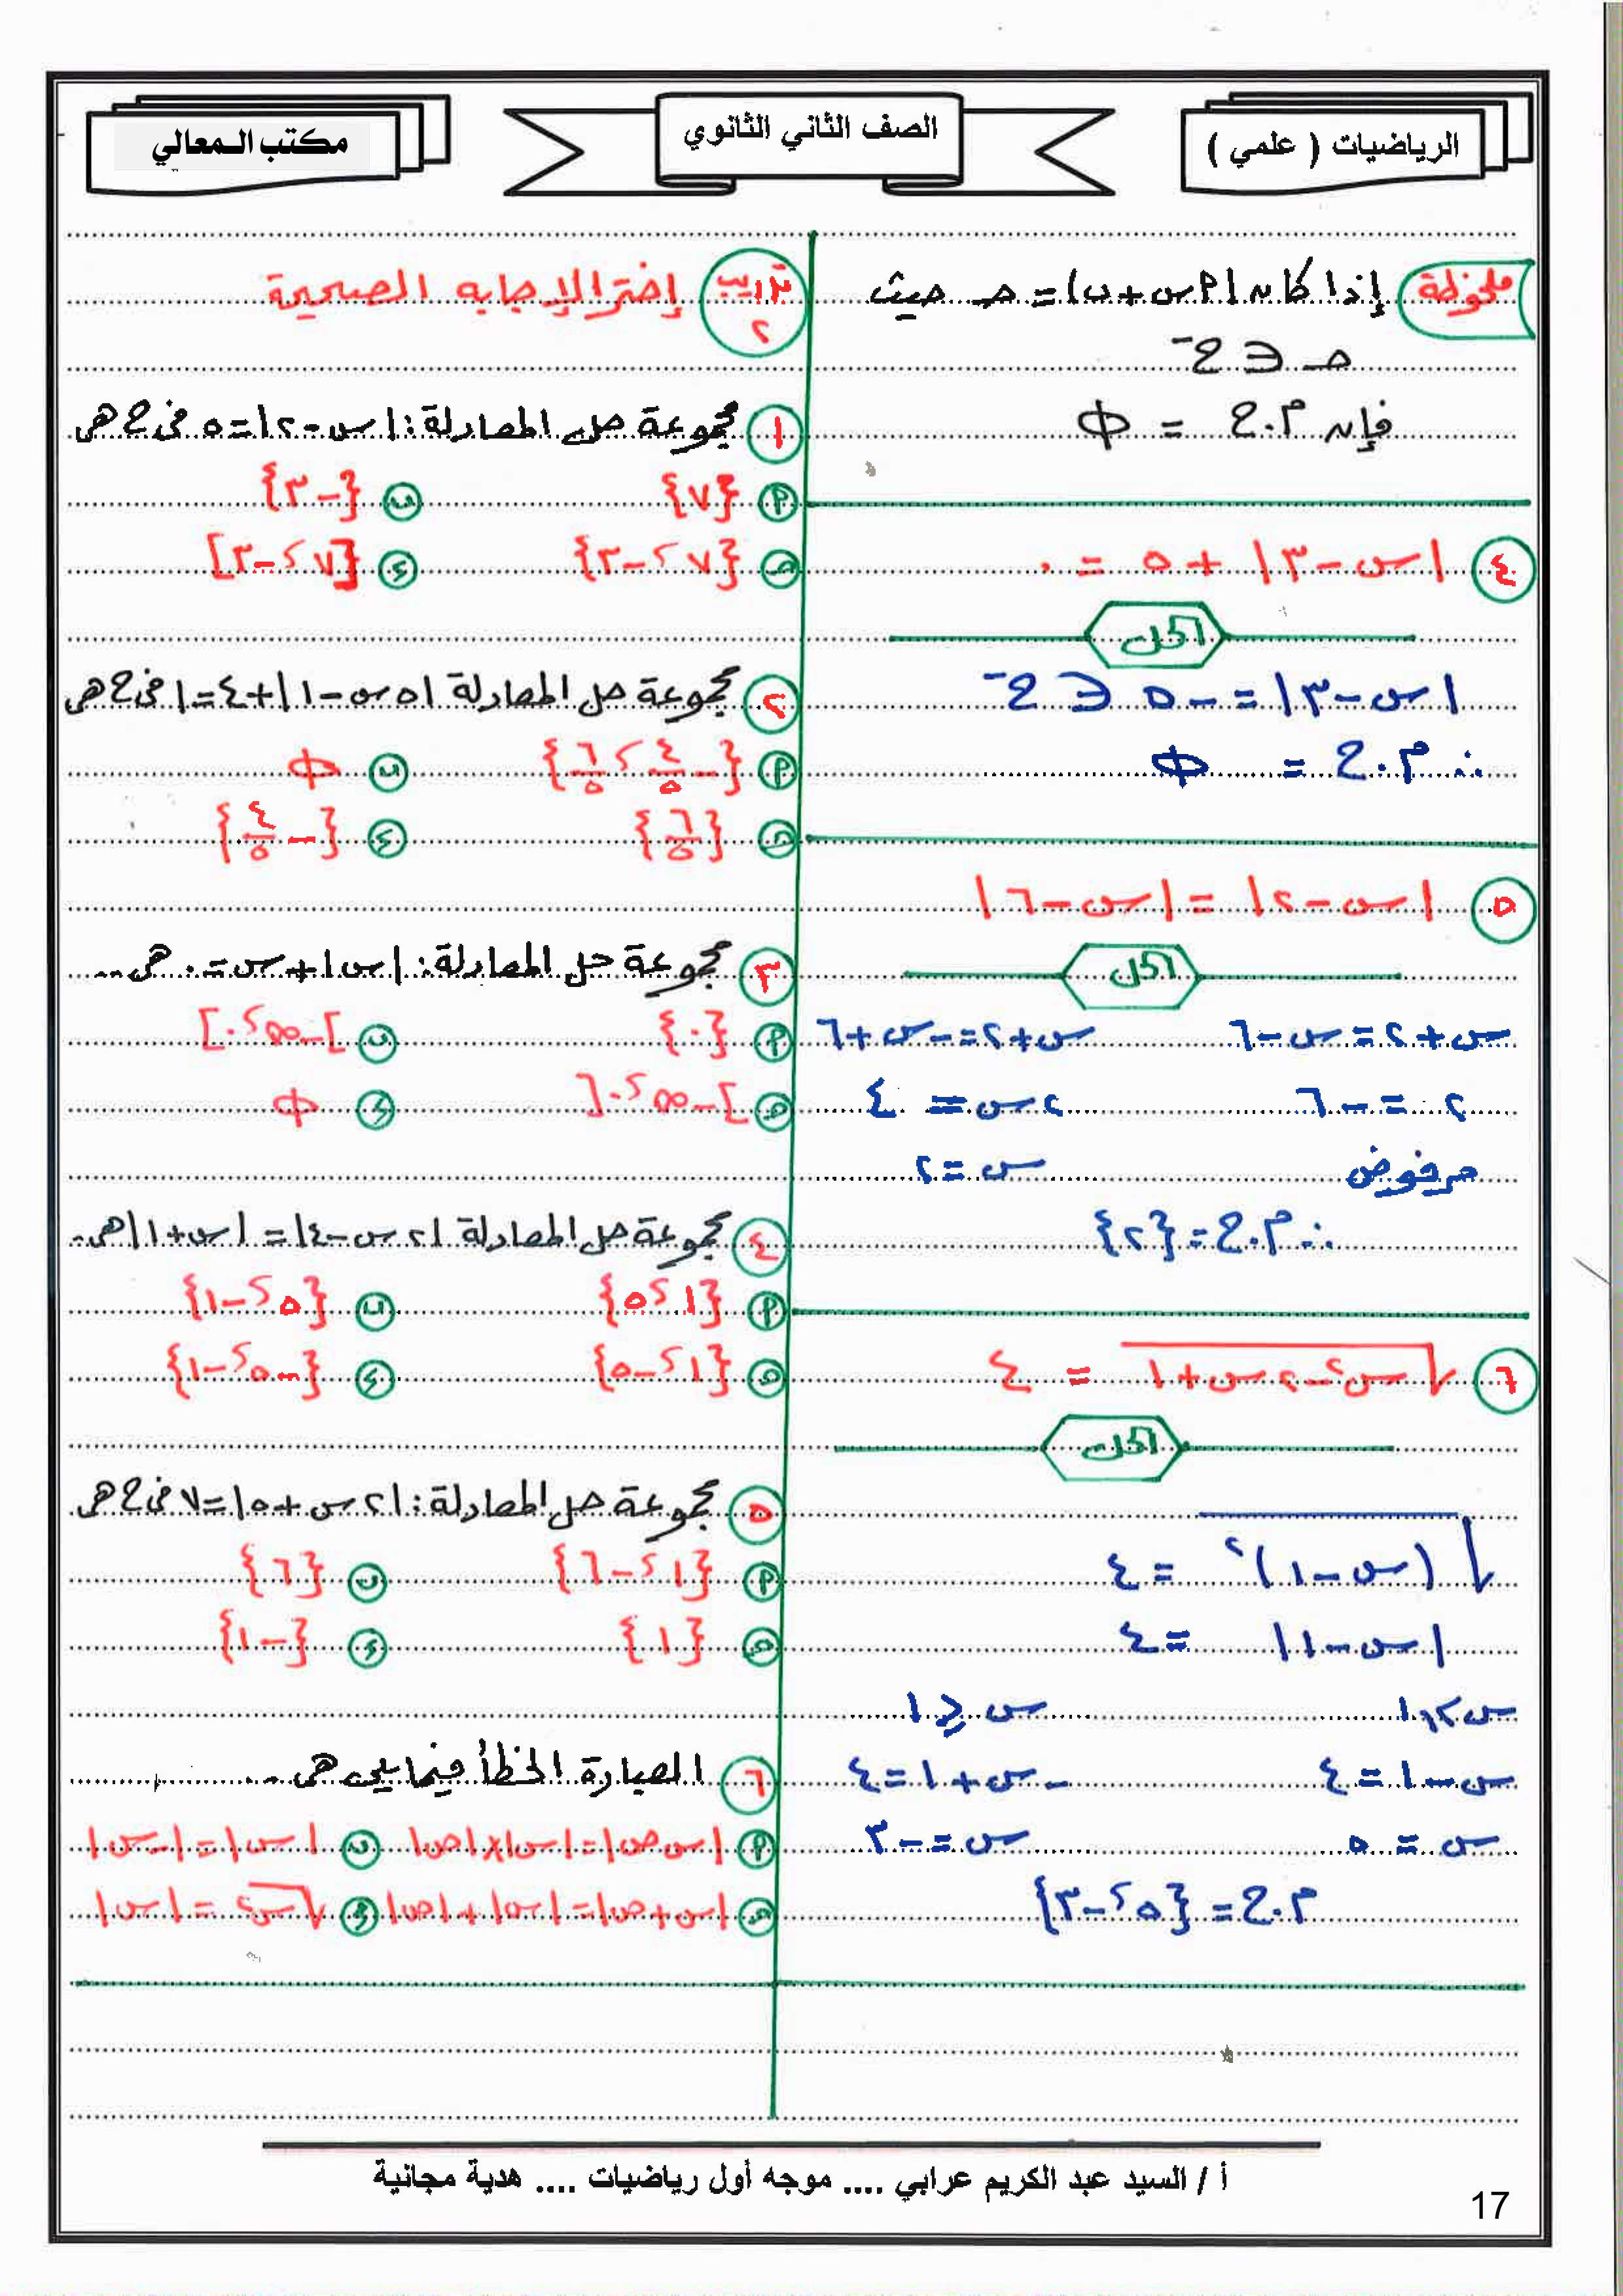 الرياضيات ( علمي )
الصف الثاني الثانوي
مكتب المعالي
ملحوظة إذا كان |٢س+ب| = حـ حيث
حـ ∈ ح⁻
فإن م.ح = Φ
٤ |س-٣| + ٥ = ٠
الحل
|س-٣| = -٥ ∈ ح⁻
∴ م.ح = Φ
٥ |س-٢| = |س-٦|
الحل
س+٢=س-٦ س+٢=-س+٦
٢ = -٦ ٢س = ٤
مرفوض س = ٢
∴ م.ح = {٢}
٦ √س٢-٢س+١ = ٤
الحل
√(س-١)٢ = ٤
|س-١| = ٤
س≥١ س≤١
س-١=٤ -س+١=٤
س = ٥ س=-٣
م.ح = {٥، -٣}
تدريب ٢ إختر الإجابه الصحيحة
١ مجموعة حل المعادلة: |س-٢|=٥ فى ح هى
أ {٧} ب {-٣}
حـ {٧، -٣} د [٧، -٣]
٢ مجموعة حل المعادلة |٥س-١|+٤=١ فى ح هى
أ {-٤/٥، ٦/٥} ب Φ
حـ {٦/٥} د {-٤/٥}
٣ مجموعة حل المعادلة: |س|+س=٠ هى ..
أ {٠} ب ]-∞، ٠]
حـ ]-∞، ٠[ د Φ
٤ مجموعة حل المعادلة |٢س-٤| = |س+١| هى..
أ {١، ٥} ب {٥، -١}
حـ {١، -٥} د {-٥، -١}
٥ مجموعة حل المعادلة: |٢س+٥|=٧ فى ح هى
أ {١، -٦} ب {٦}
حـ {١} د {-١}
٦ العبارة الخطأ فيما يلى هى ..........
أ |س ص|=|س|×|ص| ب |س|=|-س|
حـ |س+ص|=|س|+|ص| د √س٢ = |س|
أ / السيد عبد الكريم عرابي .... موجه أول رياضيات .... هدية مجانية
17